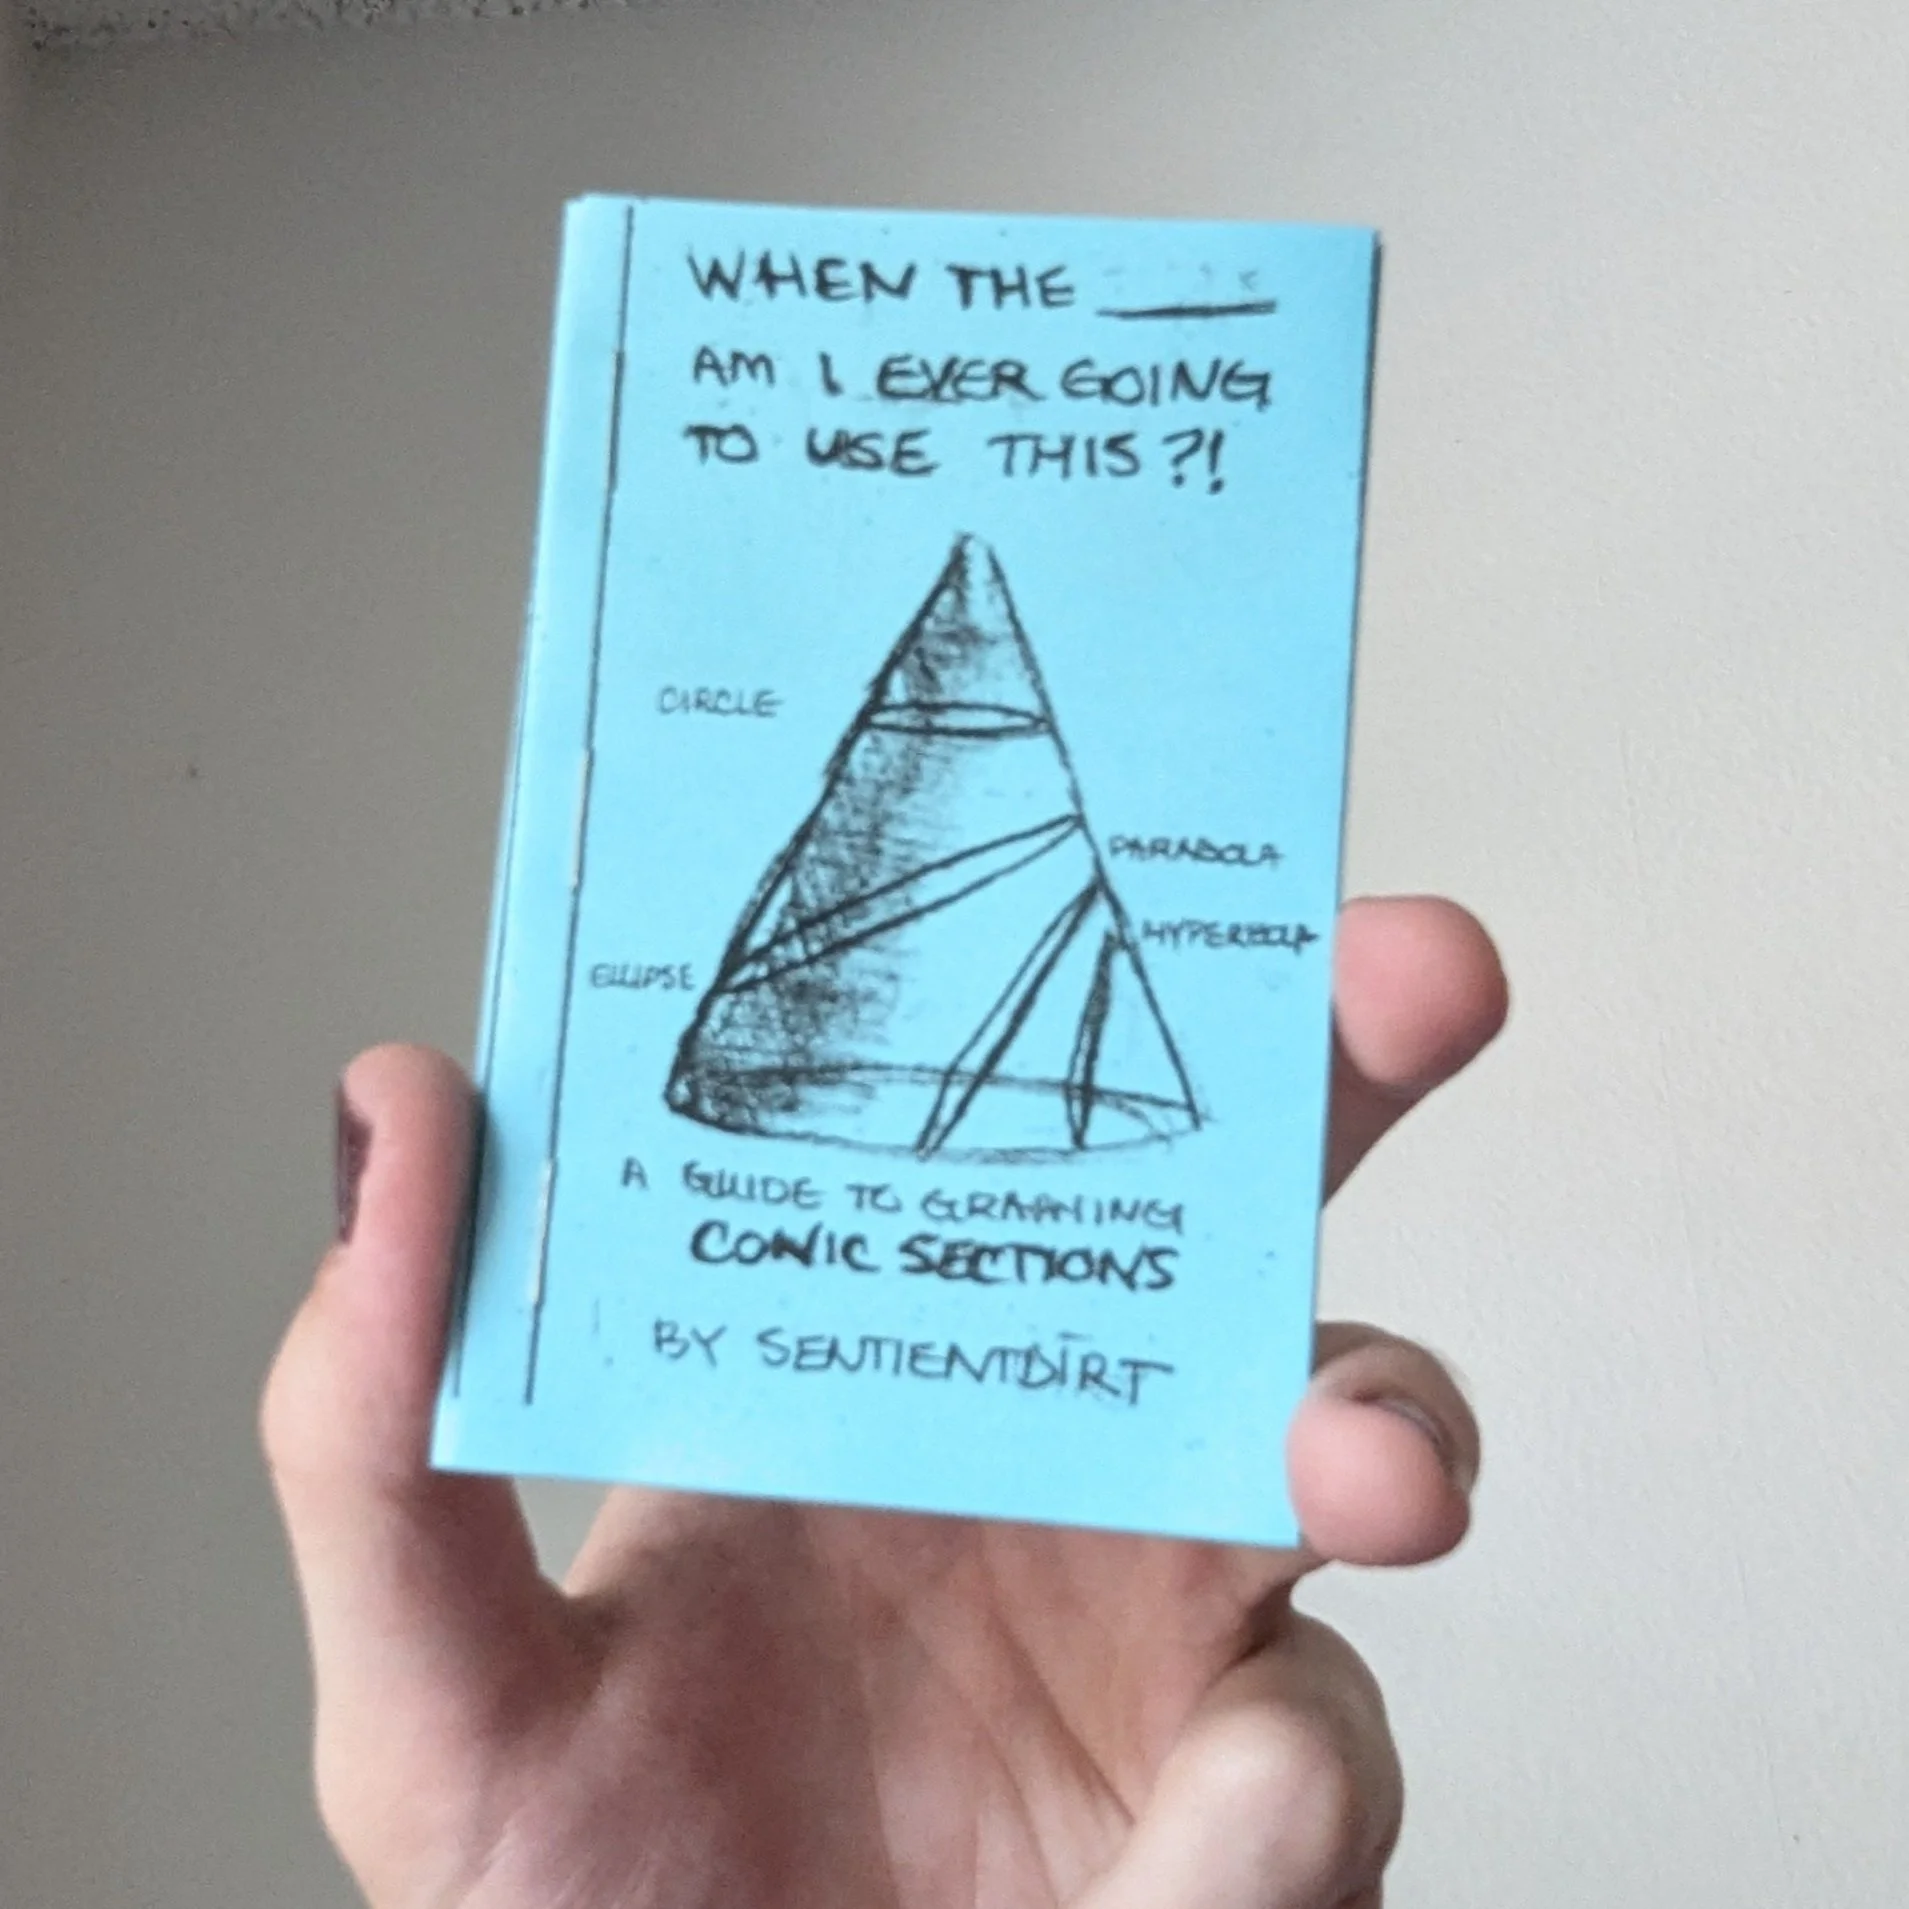 WHEN THE ____
AM I EVER GOING
TO USE THIS?!
CIRCLE
PARABOLA
HYPERBOLA
ELLIPSE
A GUIDE TO GRAPHING
CONIC SECTIONS
BY SENTIENTDIRT